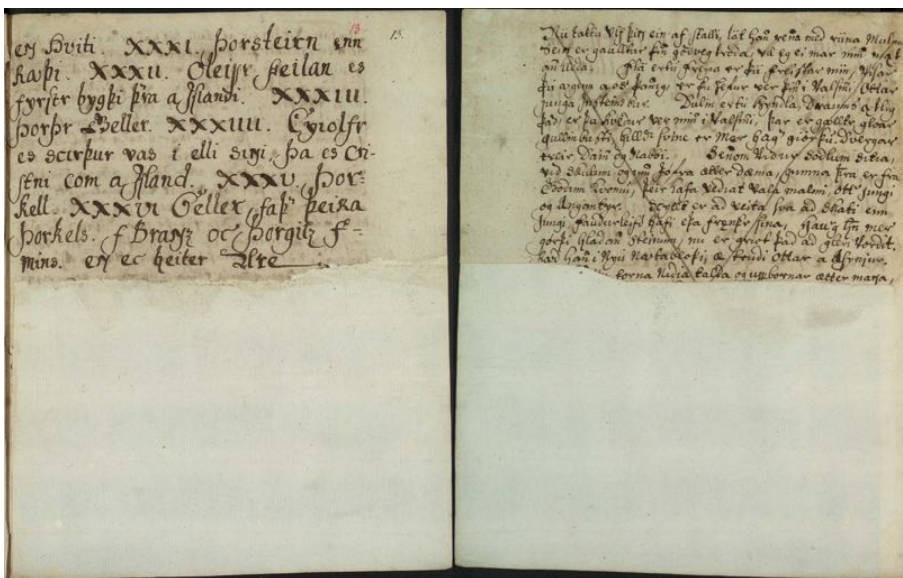 13
13.
en Hviti. XXXI. Þorsteirn enn
Raþi. XXXII. Oleifr feilan es
fyrstr bygþi þra a Islandi. XXXIII.
Þorþr Geller. XXXIIII. Eyiolfr
es scirþur vas i elli sini, þa es Cri-
stni com a Island. XXXV. Þor-
kell. XXXVI Geller, faþ þeira
Þorkels. f Brandz oc Þorgilz f-
mins. en ec heiter Are
Nu taktu Ulf þin ein af stalli, lat han rena med runa
Seinn er gaulltur þin godveg troda, vil eg ei mar min
Flá ertu Freya er þu freistar min, visar
þu augum a oss þannig er þu hefur ver þin i Valsinni, Ottar
junga Innsteins bur. Dulin ertu Hyndla, draums ætlig
þad er þu kvedur ver min i Valsinni, þar er golltr gloar
gullinbusti, hilldi svine er mer hag giordu dvergar
tveir Dain og Nabbi. Senom vidur sodlum sitia,
vid skulum og um Jofra ætter dæma, gumna þra er fra
Godum komu, þeir hafa vediat vala malmi, Ottar jungi
og Angantyr. Skyllt er ad veita sva ad skati enn
jungi faudurleifd hafi epter frendr sina, Haurg hn mer
giordi hladinn steinum, nu er griot þad ad gleri vordit.
Ottar a Asynjur.
forna nidia talda og uppbornar ætter mana,